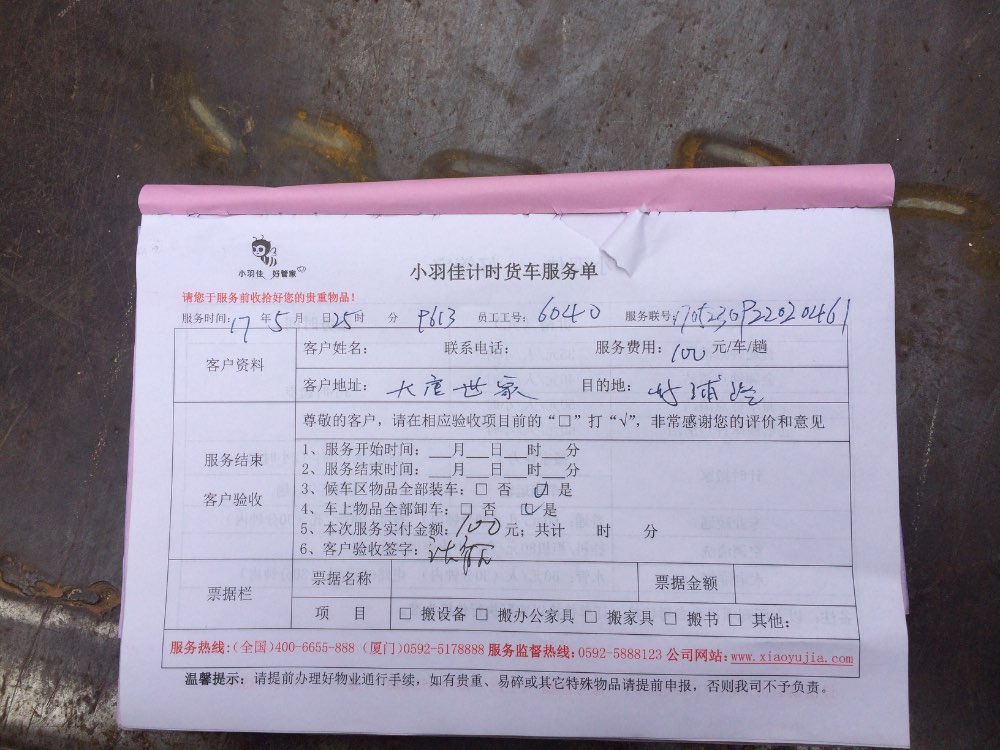 小羽佳 好管家
小羽佳计时货车服务单
请您于服务前收拾好您的贵重物品！
服务时间：17 年 5 月 日 25 时 分 P613 员工工号：6040 服务联号：
客户资料 客户姓名： 联系电话： 服务费用：100 元/车/趟
客户地址：大唐世家 目的地：
尊敬的客户，请在相应验收项目前的“□”打“√”，非常感谢您的评价和意见
服务结束
客户验收
1、服务开始时间：___月___日___时___分
2、服务结束时间：___月___日___时___分
3、候车区物品全部装车：□ 否 ☑ 是
4、车上物品全部卸车：□ 否 ☑ 是
5、本次服务实付金额：100 元；共计 时 分
6、客户验收签字：
票据栏 票据名称 票据金额
项 目 □ 搬设备 □ 搬办公家具 □ 搬家具 □ 搬书 □ 其他：
服务热线：(全国)400-6655-888 (厦门)0592-5178888 服务监督热线：0592-5888123 公司网站：www.xiaoyujia.com
温馨提示：请提前办理好物业通行手续，如有贵重、易碎或其它特殊物品请提前申报，否则我司不予负责。